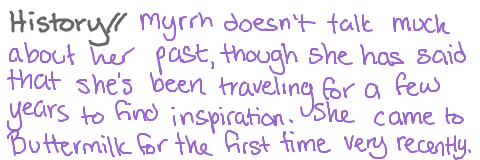 History// Myrrh doesn't talk much
about her past, though she has said
that she's been traveling for a few
years to find inspiration. She came to
Buttermilk for the first time very recently.